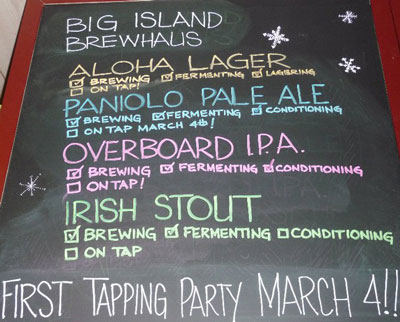 BIG ISLAND
BREWHAUS
ALOHA LAGER
☑ BREWING ☑ FERMENTING ☑ LAGERING
☐ ON TAP!
PANIOLO PALE ALE
☑ BREWING ☑ FERMENTING ☑ CONDITIONING
☐ ON TAP MARCH 4th!
OVERBOARD I.P.A.
☑ BREWING ☑ FERMENTING ☑ CONDITIONING
☐ ON TAP!
IRISH STOUT
☑ BREWING ☑ FERMENTING ☐ CONDITIONING
☐ ON TAP
FIRST TAPPING PARTY MARCH 4!!